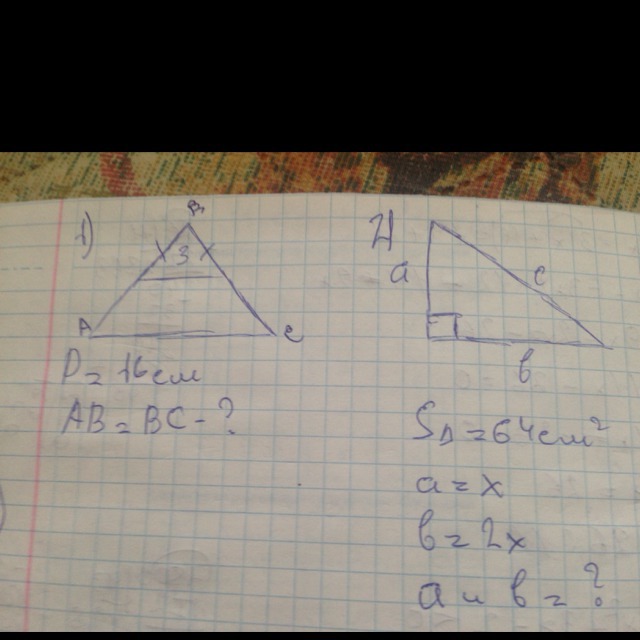 1)
B
3
A
C
P = 16 см
AB = BC - ?
2)
a
c
b
S△ = 64 см²
a = x
b = 2x
a и b = ?